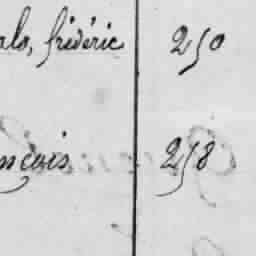 als, frédéric 250
ançois 258